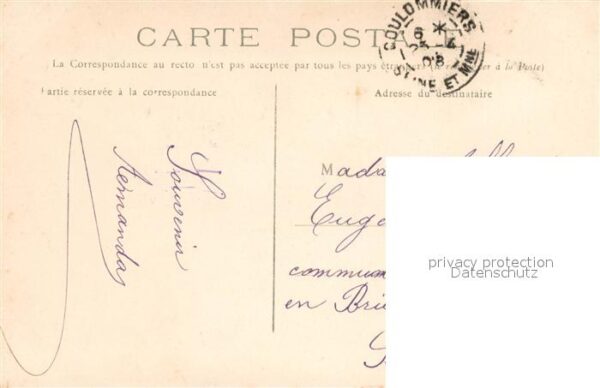 CARTE POSTALE
COULOMMIERS
6 *
25 4
08
SEINE ET MNE
La Correspondance au recto n'est pas acceptée par tous les pays étrangers (à la Poste)
Partie réservée à la correspondance
Adresse du destinataire
Souvenir
Madame
Eug
commun
en Brie
privacy protection
Datenschutz